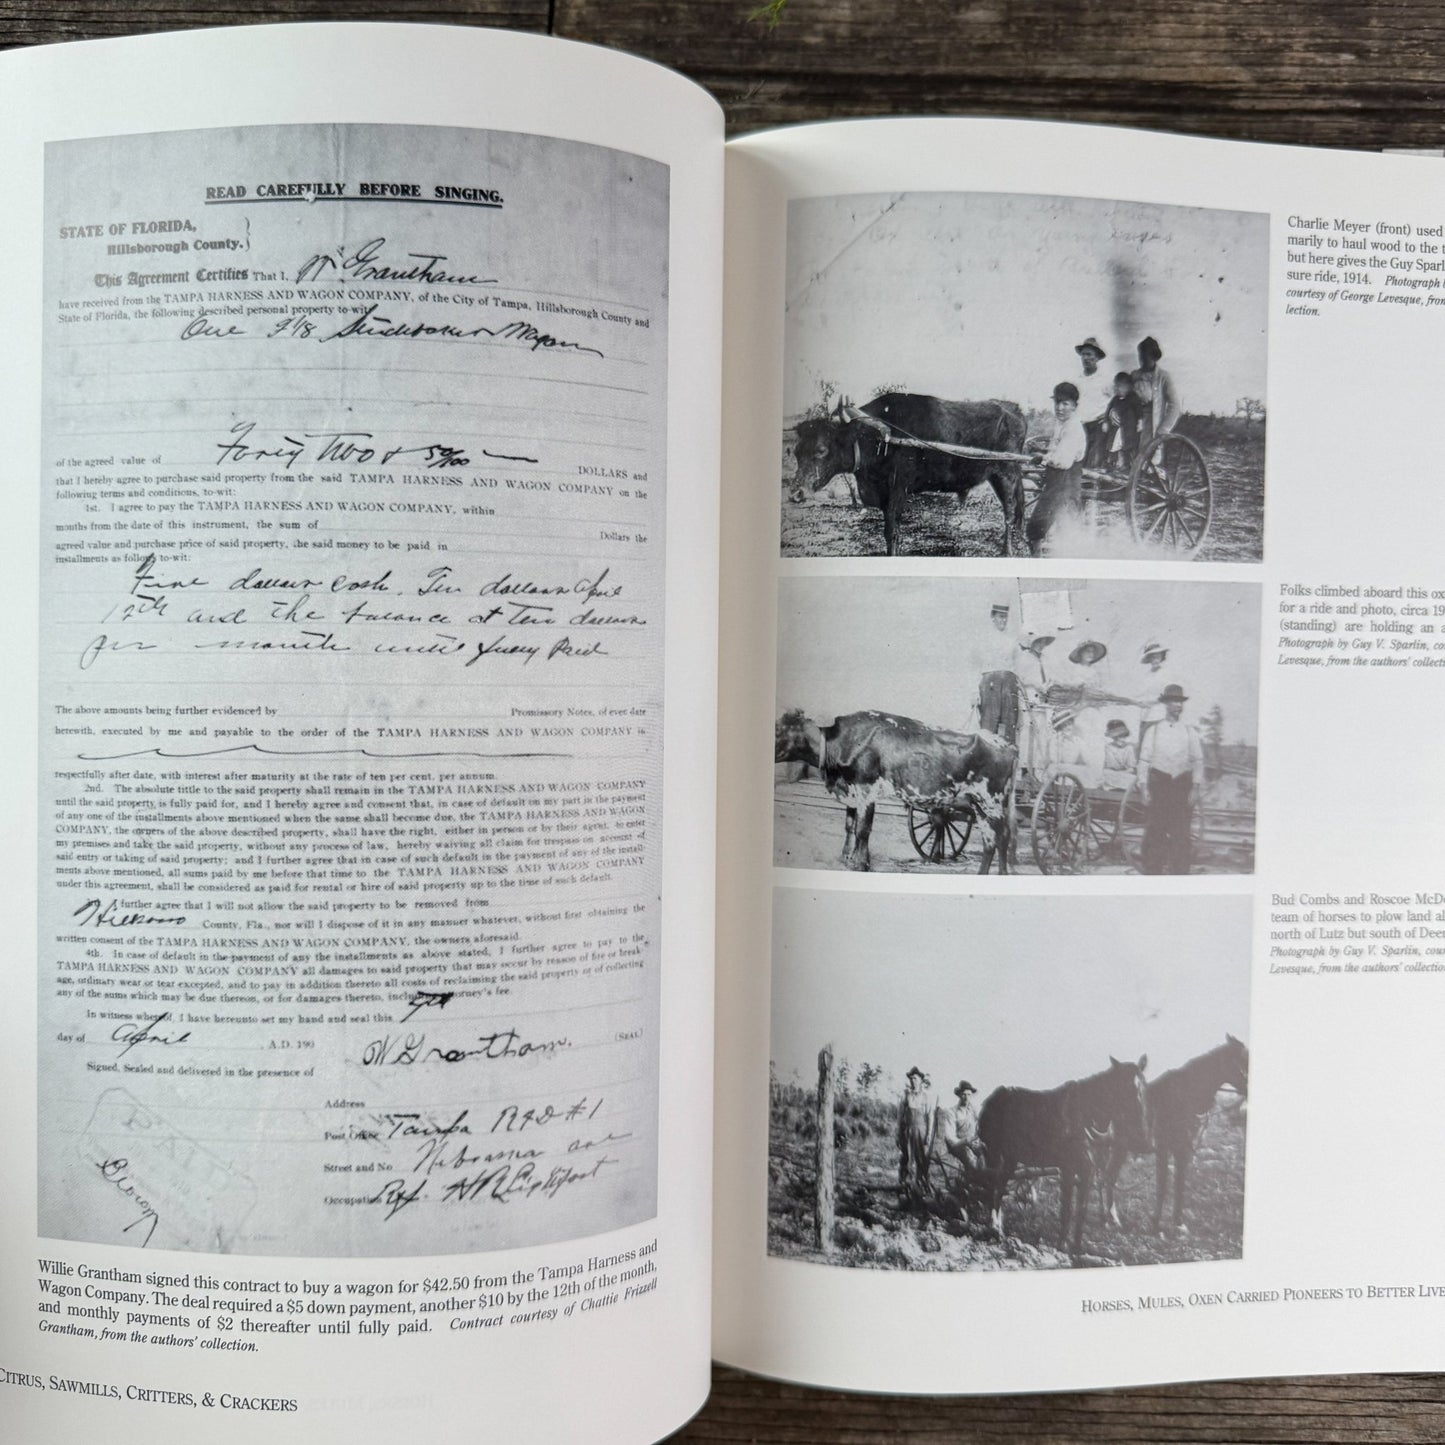 READ CAREFULLY BEFORE SINGING.
STATE OF FLORIDA,
Hillsborough County.
This Agreement Certifies That I, W. Grantham
have received from the TAMPA HARNESS AND WAGON COMPANY, of the City of Tampa, Hillsborough County and
State of Florida, the following described personal property to-wit:
One Studebaker Wagon
of the agreed value of Forty Two & 50/100 DOLLARS and
that I hereby agree to purchase said property from the said TAMPA HARNESS AND WAGON COMPANY on the
following terms and conditions, to-wit:
1st. I agree to pay the TAMPA HARNESS AND WAGON COMPANY, within
months from the date of this instrument, the sum of
Dollars the
agreed value and purchase price of said property, the said money to be paid in
installments as follows to-wit:
Five dollars cash. Ten dollars April
12th and the balance at Ten dollars
per month until fully Paid
The above amounts being further evidenced by Promissory Notes, of even date
herewith, executed by me and payable to the order of the TAMPA HARNESS AND WAGON COMPANY in
respectfully after date, with interest after maturity at the rate of ten per cent. per annum.
2nd. The absolute tittle to the said property shall remain in the TAMPA HARNESS AND WAGON COMPANY
until the said property is fully paid for, and I hereby agree and consent that, in case of default on my part in the payment
of any one of the installments above mentioned when the same shall become due, the TAMPA HARNESS AND WAGON
COMPANY, the owners of the above described property, shall have the right, either in person or by their agent, to enter
my premises and take the said property, without any process of law, hereby waiving all claim for trespass on account of
said entry or taking of said property; and I further agree that in case of such default in the payment of any of the install-
ments above mentioned, all sums paid by me before that time to the TAMPA HARNESS AND WAGON COMPANY
under this agreement, shall be considered as paid for rental or hire of said property up to the time of such default.
I further agree that I will not allow the said property to be removed from
Hillsboro County, Fla., nor will I dispose of it in any manner whatever, without first obtaining the
written consent of the TAMPA HARNESS AND WAGON COMPANY, the owners aforesaid.
4th. In case of default in the payment of any of the installments as above stated, I further agree to pay to the
TAMPA HARNESS AND WAGON COMPANY all damages to said property that may occur by reason of fire or break-
age, ordinary wear or tear excepted, and to pay in addition thereto all costs of reclaiming the said property or of collecting
any of the sums which may be due thereon, or for damages thereto, including attorney's fee.
In witness whereof, I have hereunto set my hand and seal this
day of April, A.D. 190 W Grantham. (SEAL)
Signed, Sealed and delivered in the presence of
Address
Post Office Tampa RFD #1
Street and No Nebraska ave
Occupation Ref.
Willie Grantham signed this contract to buy a wagon for $42.50 from the Tampa Harness and
Wagon Company. The deal required a $5 down payment, another $10 by the 12th of the month,
and monthly payments of $2 thereafter until fully paid. Contract courtesy of Chattie Frizzell
Grantham, from the authors' collection.
CITRUS, SAWMILLS, CRITTERS, & CRACKERS
Charlie Meyer (front) used
marily to haul wood to the
but here gives the Guy Sparl
sure ride, 1914. Photograph
courtesy of George Levesque, from
lection.
Folks climbed aboard this ox
for a ride and photo, circa 19
(standing) are holding an
Photograph by Guy V. Sparlin, cou
Levesque, from the authors' collecti
Bud Combs and Roscoe McD
team of horses to plow land al
north of Lutz but south of Deer
Photograph by Guy V. Sparlin, cour
Levesque, from the authors' collection
HORSES, MULES, OXEN CARRIED PIONEERS TO BETTER LIVE